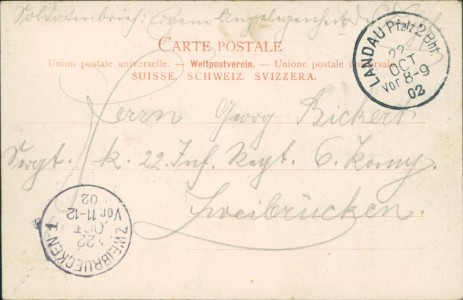 Soldatenbrief: Eigene Angelegenheit d. Empf.
CARTE POSTALE
Union postale universelle. — Weltpostverein. — Unione postale universale.
SUISSE. SCHWEIZ. SVIZZERA.
LANDAU Pfalz 2 Bhf.
22
OCT
Vor 8-9
02
Herrn Georg Rickert
Sergt. k. 22. Inf. Regt. 6. Komp.
Zweibrücken.
ZWEIBRUECKEN 1
22
OCT
Vor 11-12
02